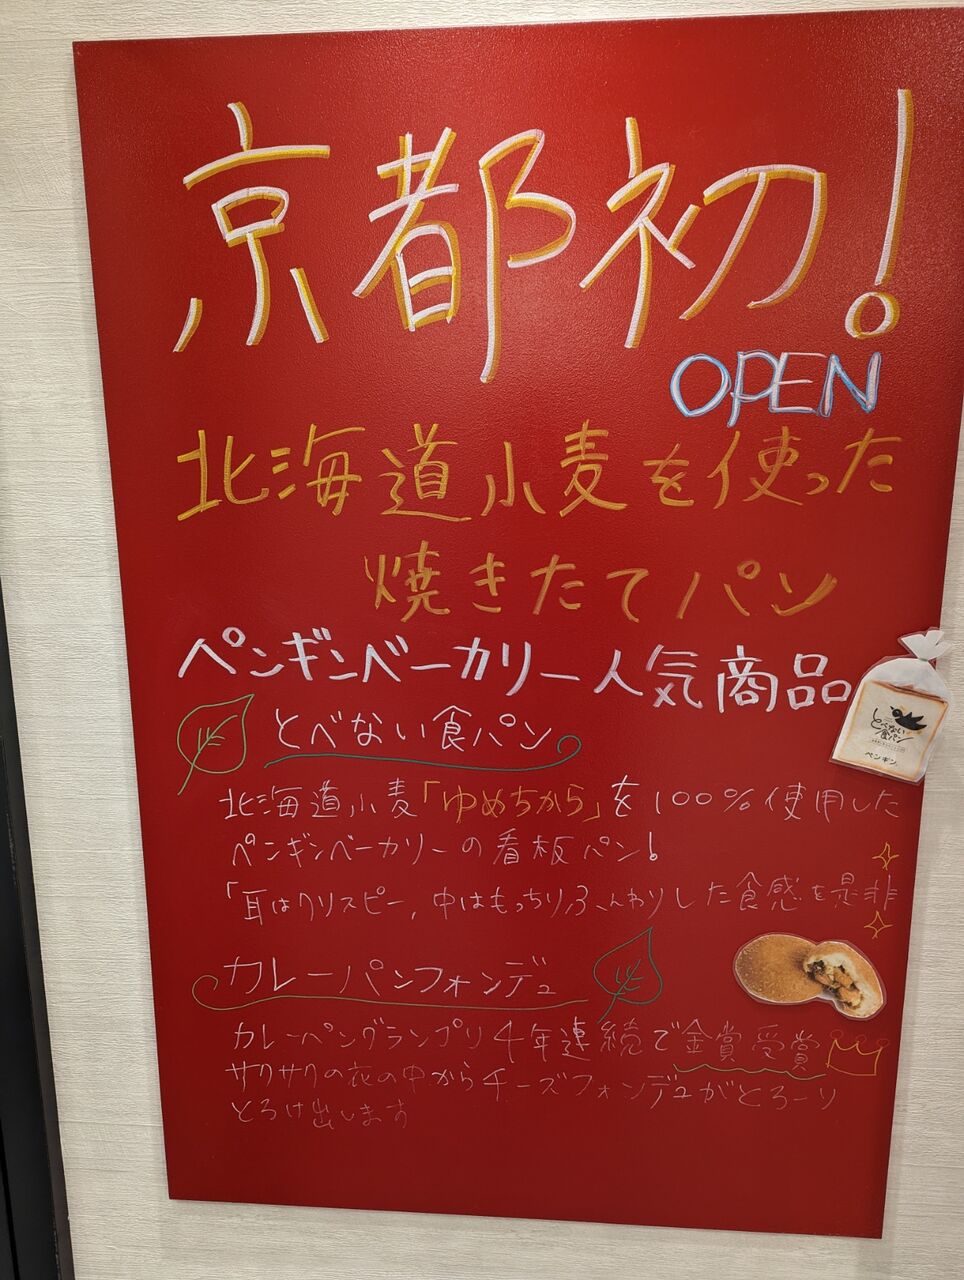 京都初!
OPEN
北海道小麦を使った
焼きたてパン
ペンギンベーカリー人気商品
とべない食パン
北海道小麦「ゆめちから」を100%使用した
ペンギンベーカリーの看板パン!
「耳はクリスピー,中はもっちりふんわりした食感を是非
カレーパンフォンデュ
カレーパングランプリ4年連続で金賞受賞
サクサクの衣の中からチーズフォンデュがとろーり
とろけ出します
とべない
食パン
ペンギン